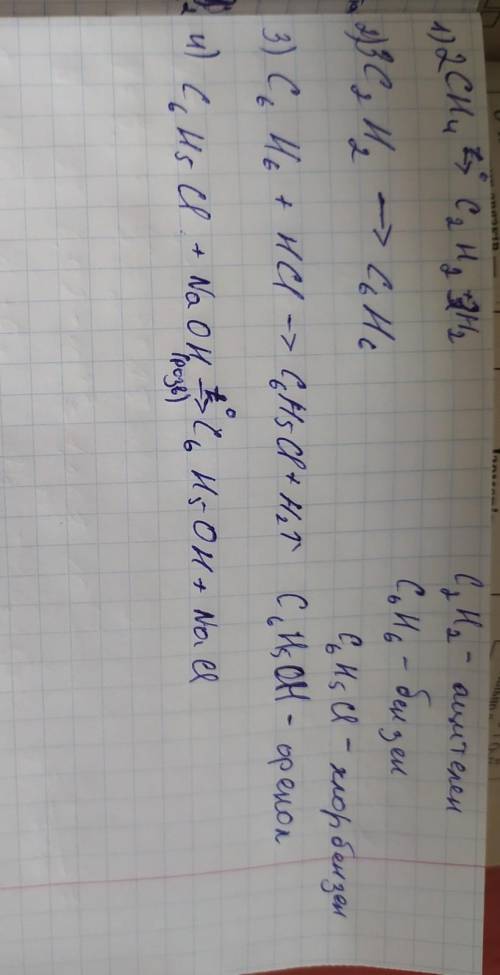 1) 2CH4 t°→ C2H2 + 3H2
2) 3C2H2 → C6H6
3) C6H6 + HCl → C6H5Cl + H2↑
4) C6H5Cl + NaOH (розв) t°→ C6H5OH + NaCl
C2H2 - ацителен
C6H6 - бензен
C6H5Cl - хлорбензен
C6H5OH - фенол